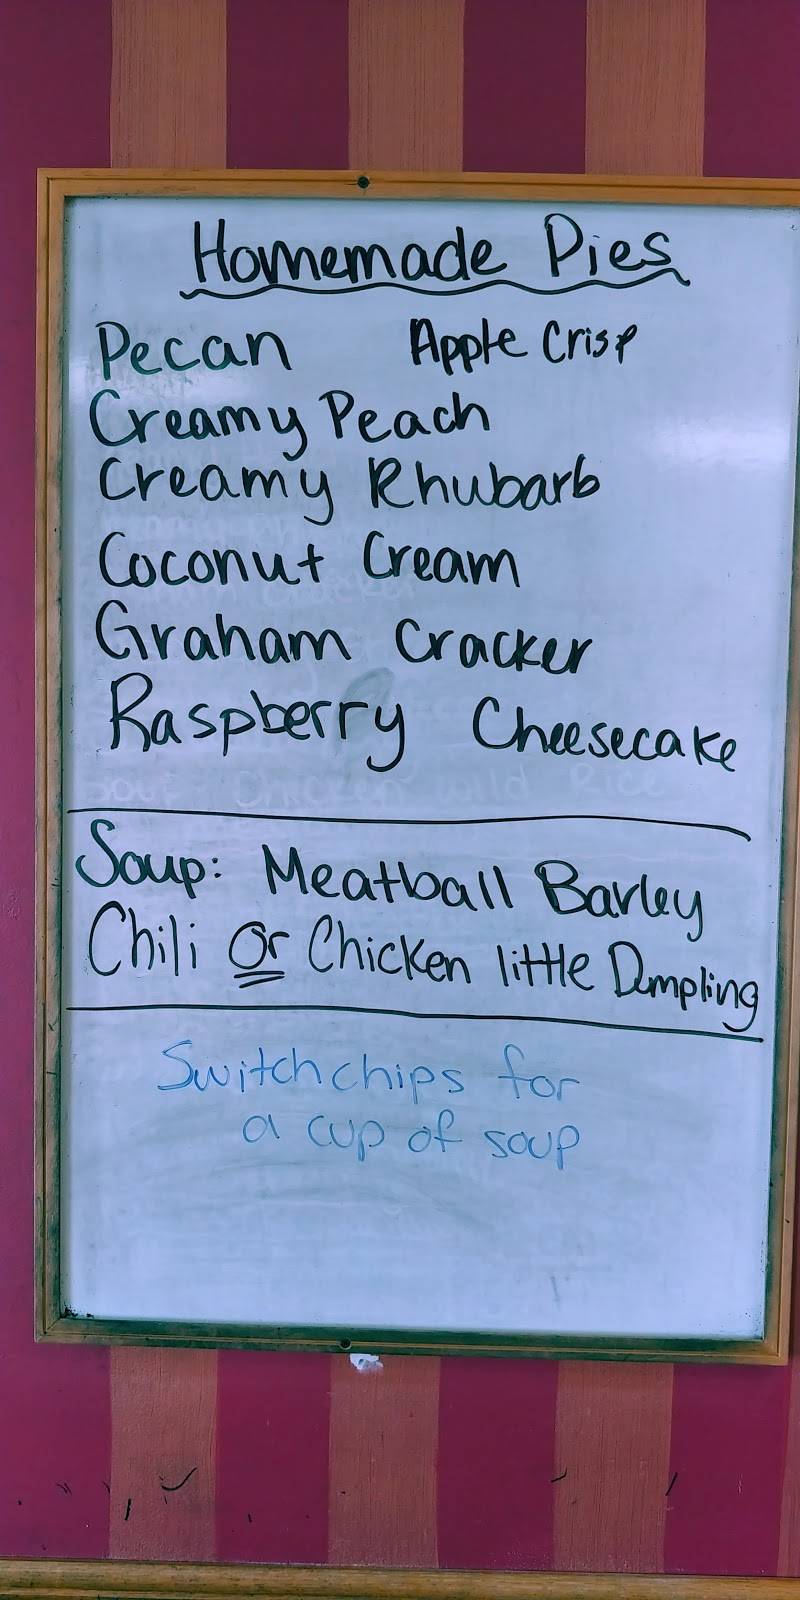 Homemade Pies
Pecan Apple Crisp
Creamy Peach
Creamy Rhubarb
Coconut Cream
Graham Cracker
Raspberry Cheesecake
Soup: Meatball Barley
Chili or Chicken little Dumpling
Switch chips for
a cup of soup